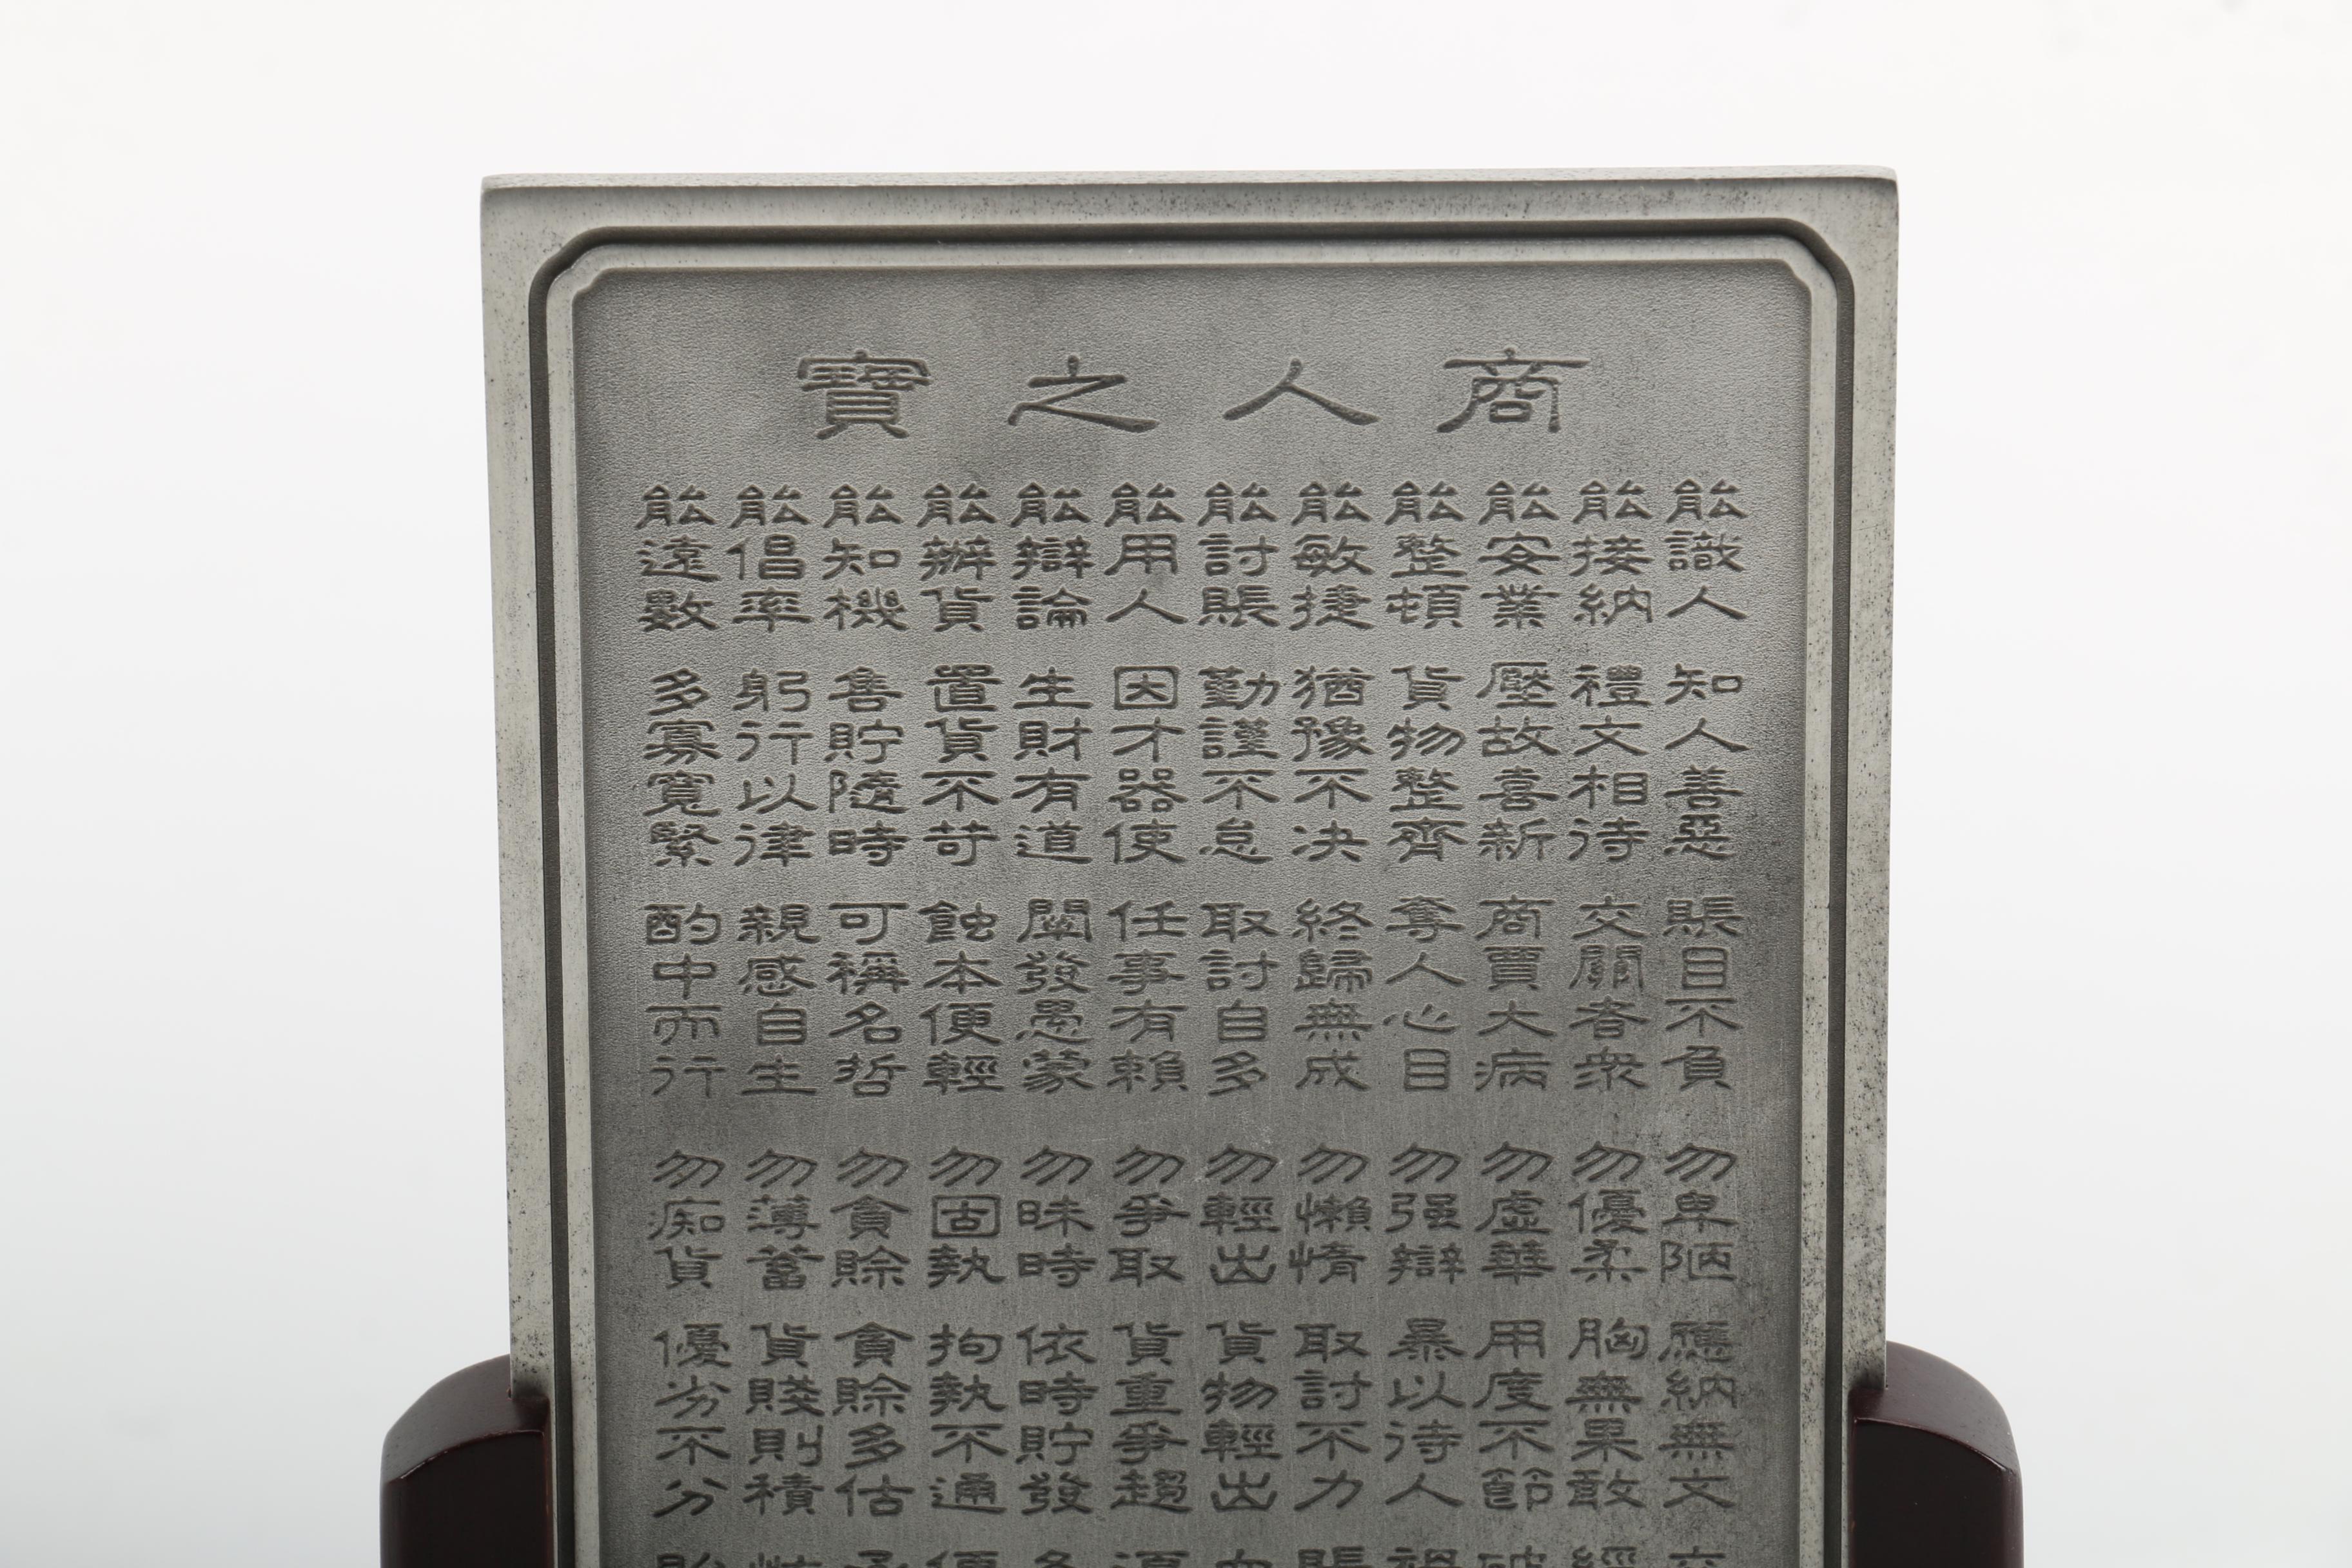 商人之寶
能識人 知人善惡 賬目不負 勿卑陋 應納無文
能接納 禮文相待 交關者衆 勿優柔 胸無果敢
能安業 壓故喜新 商賈大病 勿虛華 用度不節
能整頓 貨物整齊 奪人心目 勿强辯 暴以待人
能敏捷 猶豫不决 終歸無成 勿懶惰 取討不力
能討賬 勤謹不怠 取討自多 勿輕出 貨物輕出
能用人 因才器使 任事有賴 勿爭取 貨重爭趨
能辯論 生財有道 闡發愚蒙 勿昧時 依時貯發
能辦貨 置貨不苛 蝕本便輕 勿固執 拘執不通
能知機 售貯隨時 可稱名哲 勿貪賒 貪賒多估
能倡率 躬行以律 親感自生 勿薄蓄 貨賤則積
能遠數 多寡寬緊 酌中而行 勿痴貨 優劣不分